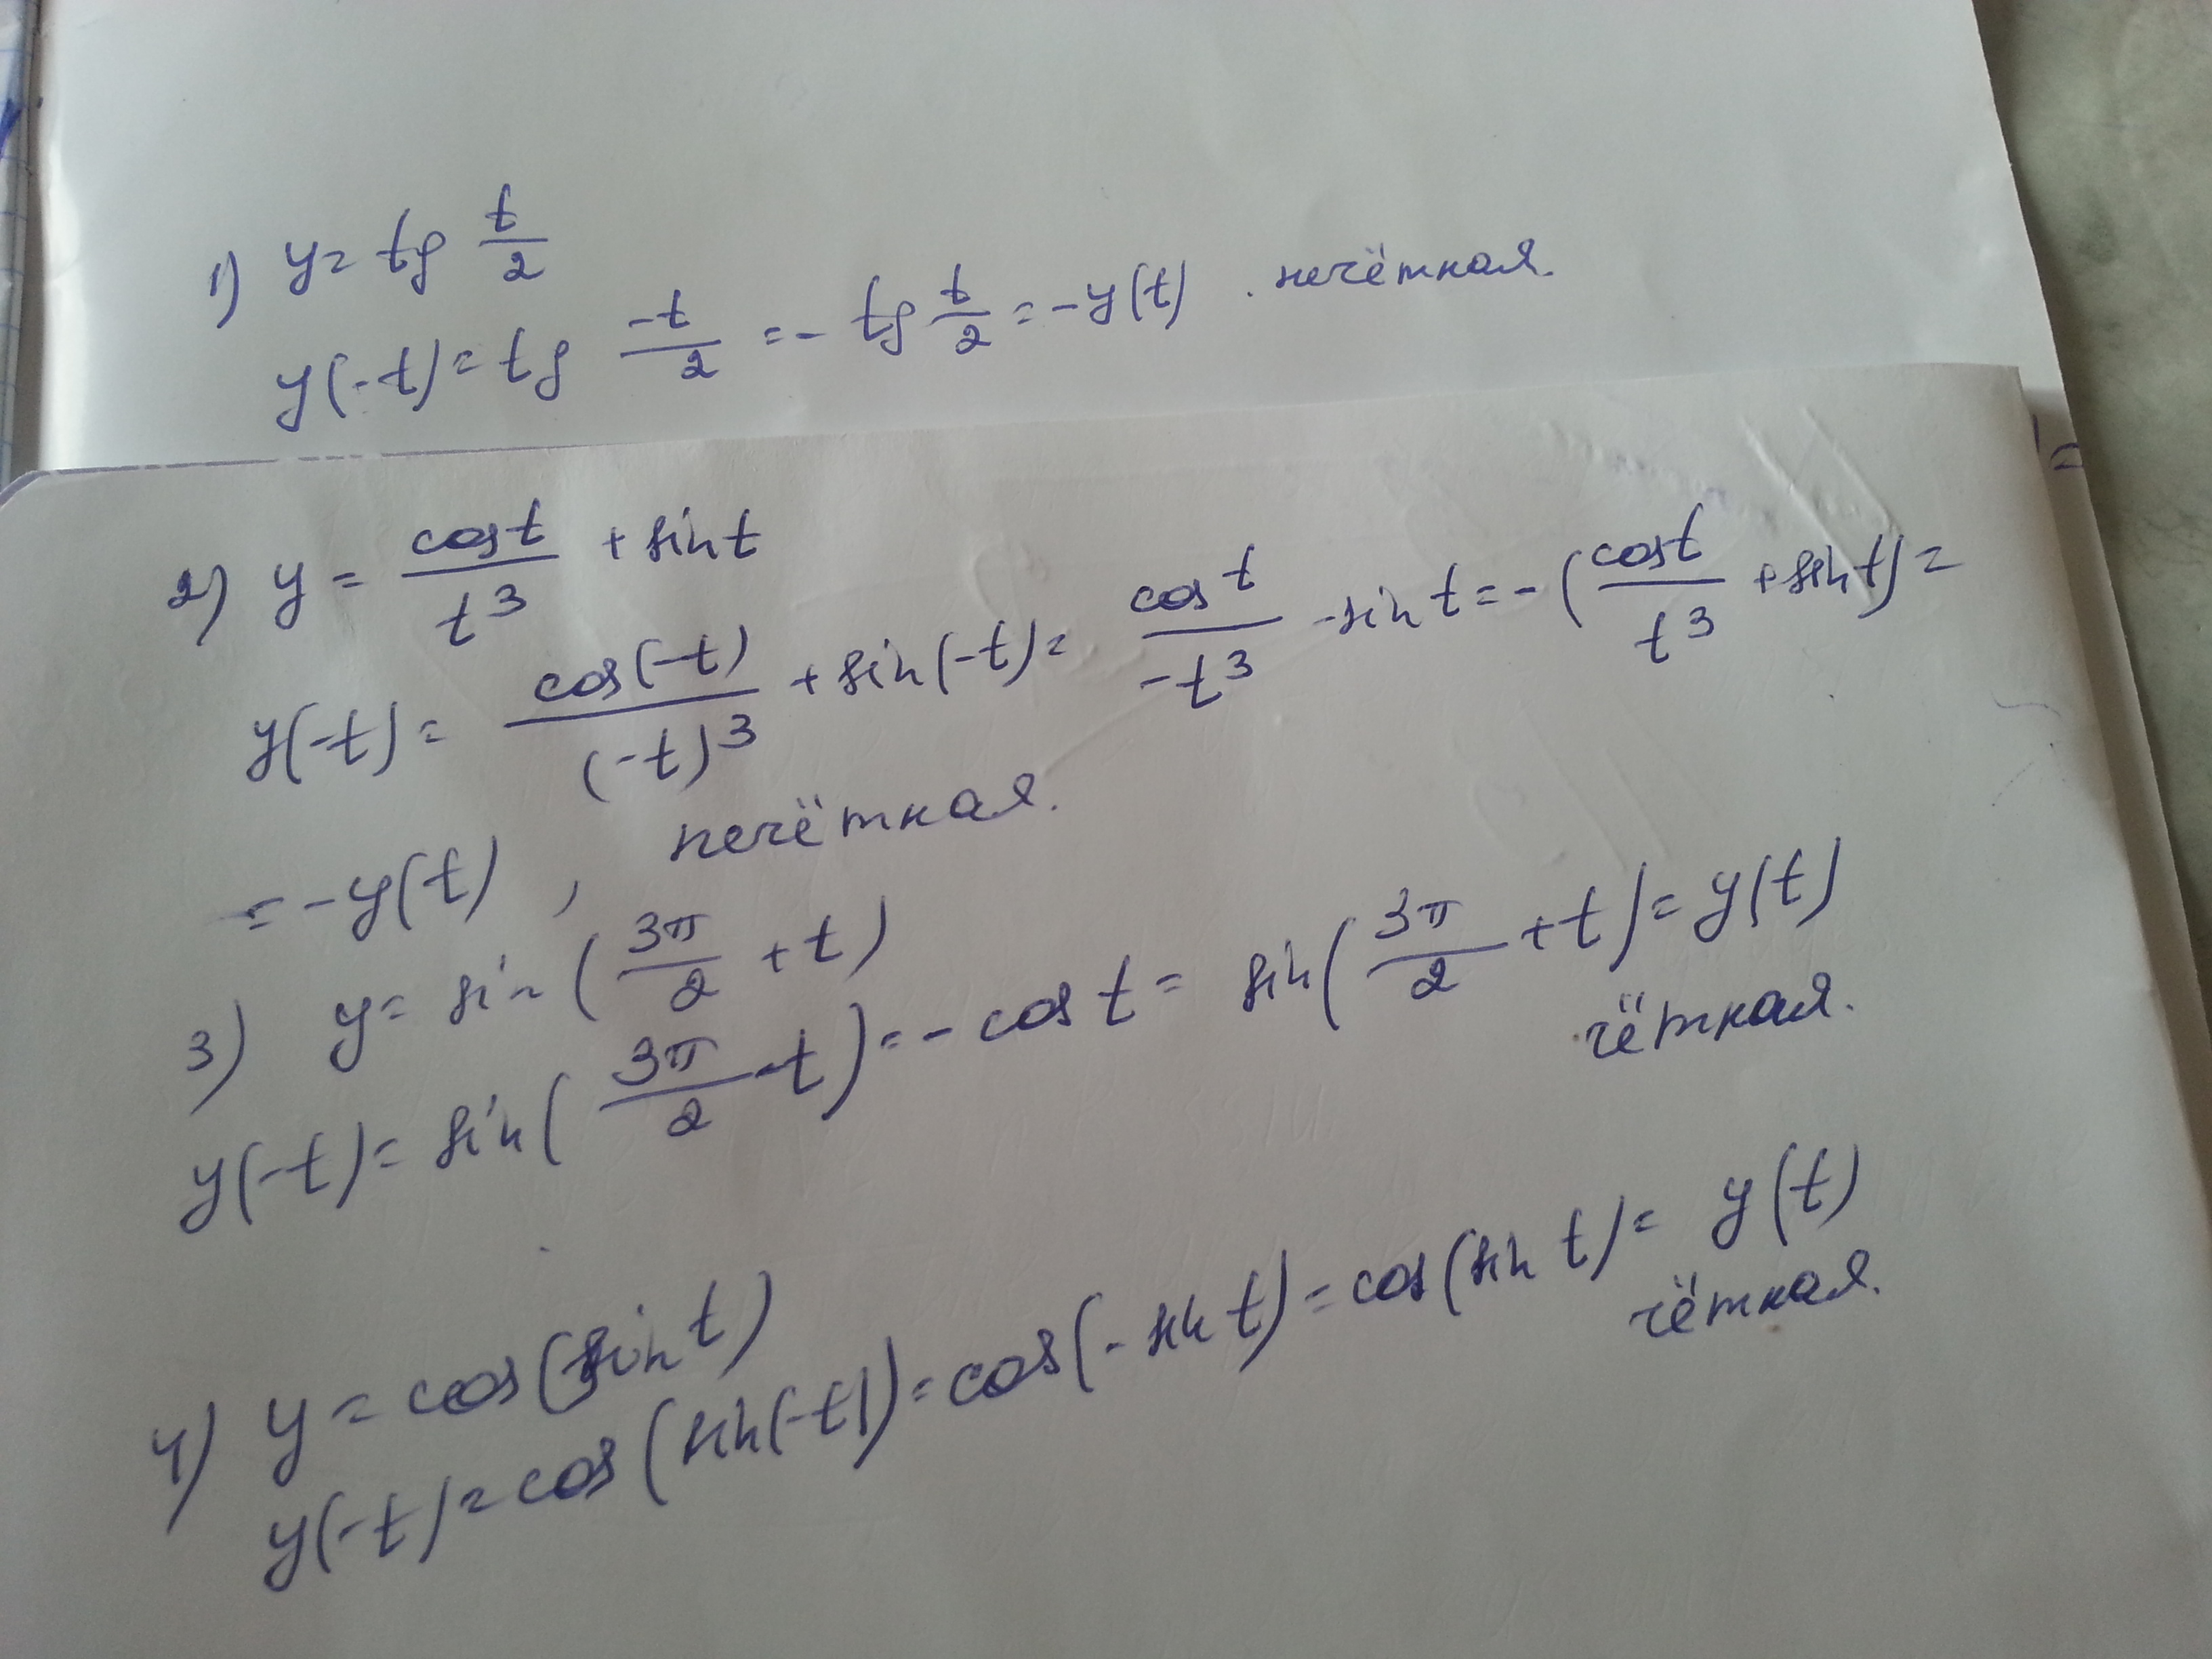 1) y = tg t/2
y(-t) = tg -t/2 = - tg t/2 = -y(t) . нечётная.
2) y = cos t / t³ + sin t
y(-t) = cos(-t) / (-t)³ + sin(-t) = cos t / -t³ - sin t = - (cos t / t³ + sin t) =
= -y(t) , нечётная.
3) y = sin (3π/2 + t)
y(-t) = sin (3π/2 - t) = - cos t = sin (3π/2 + t) = y(t)
чётная.
4) y = cos (sin t)
y(-t) = cos (sin(-t)) = cos (- sin t) = cos (sin t) = y(t)
чётная.